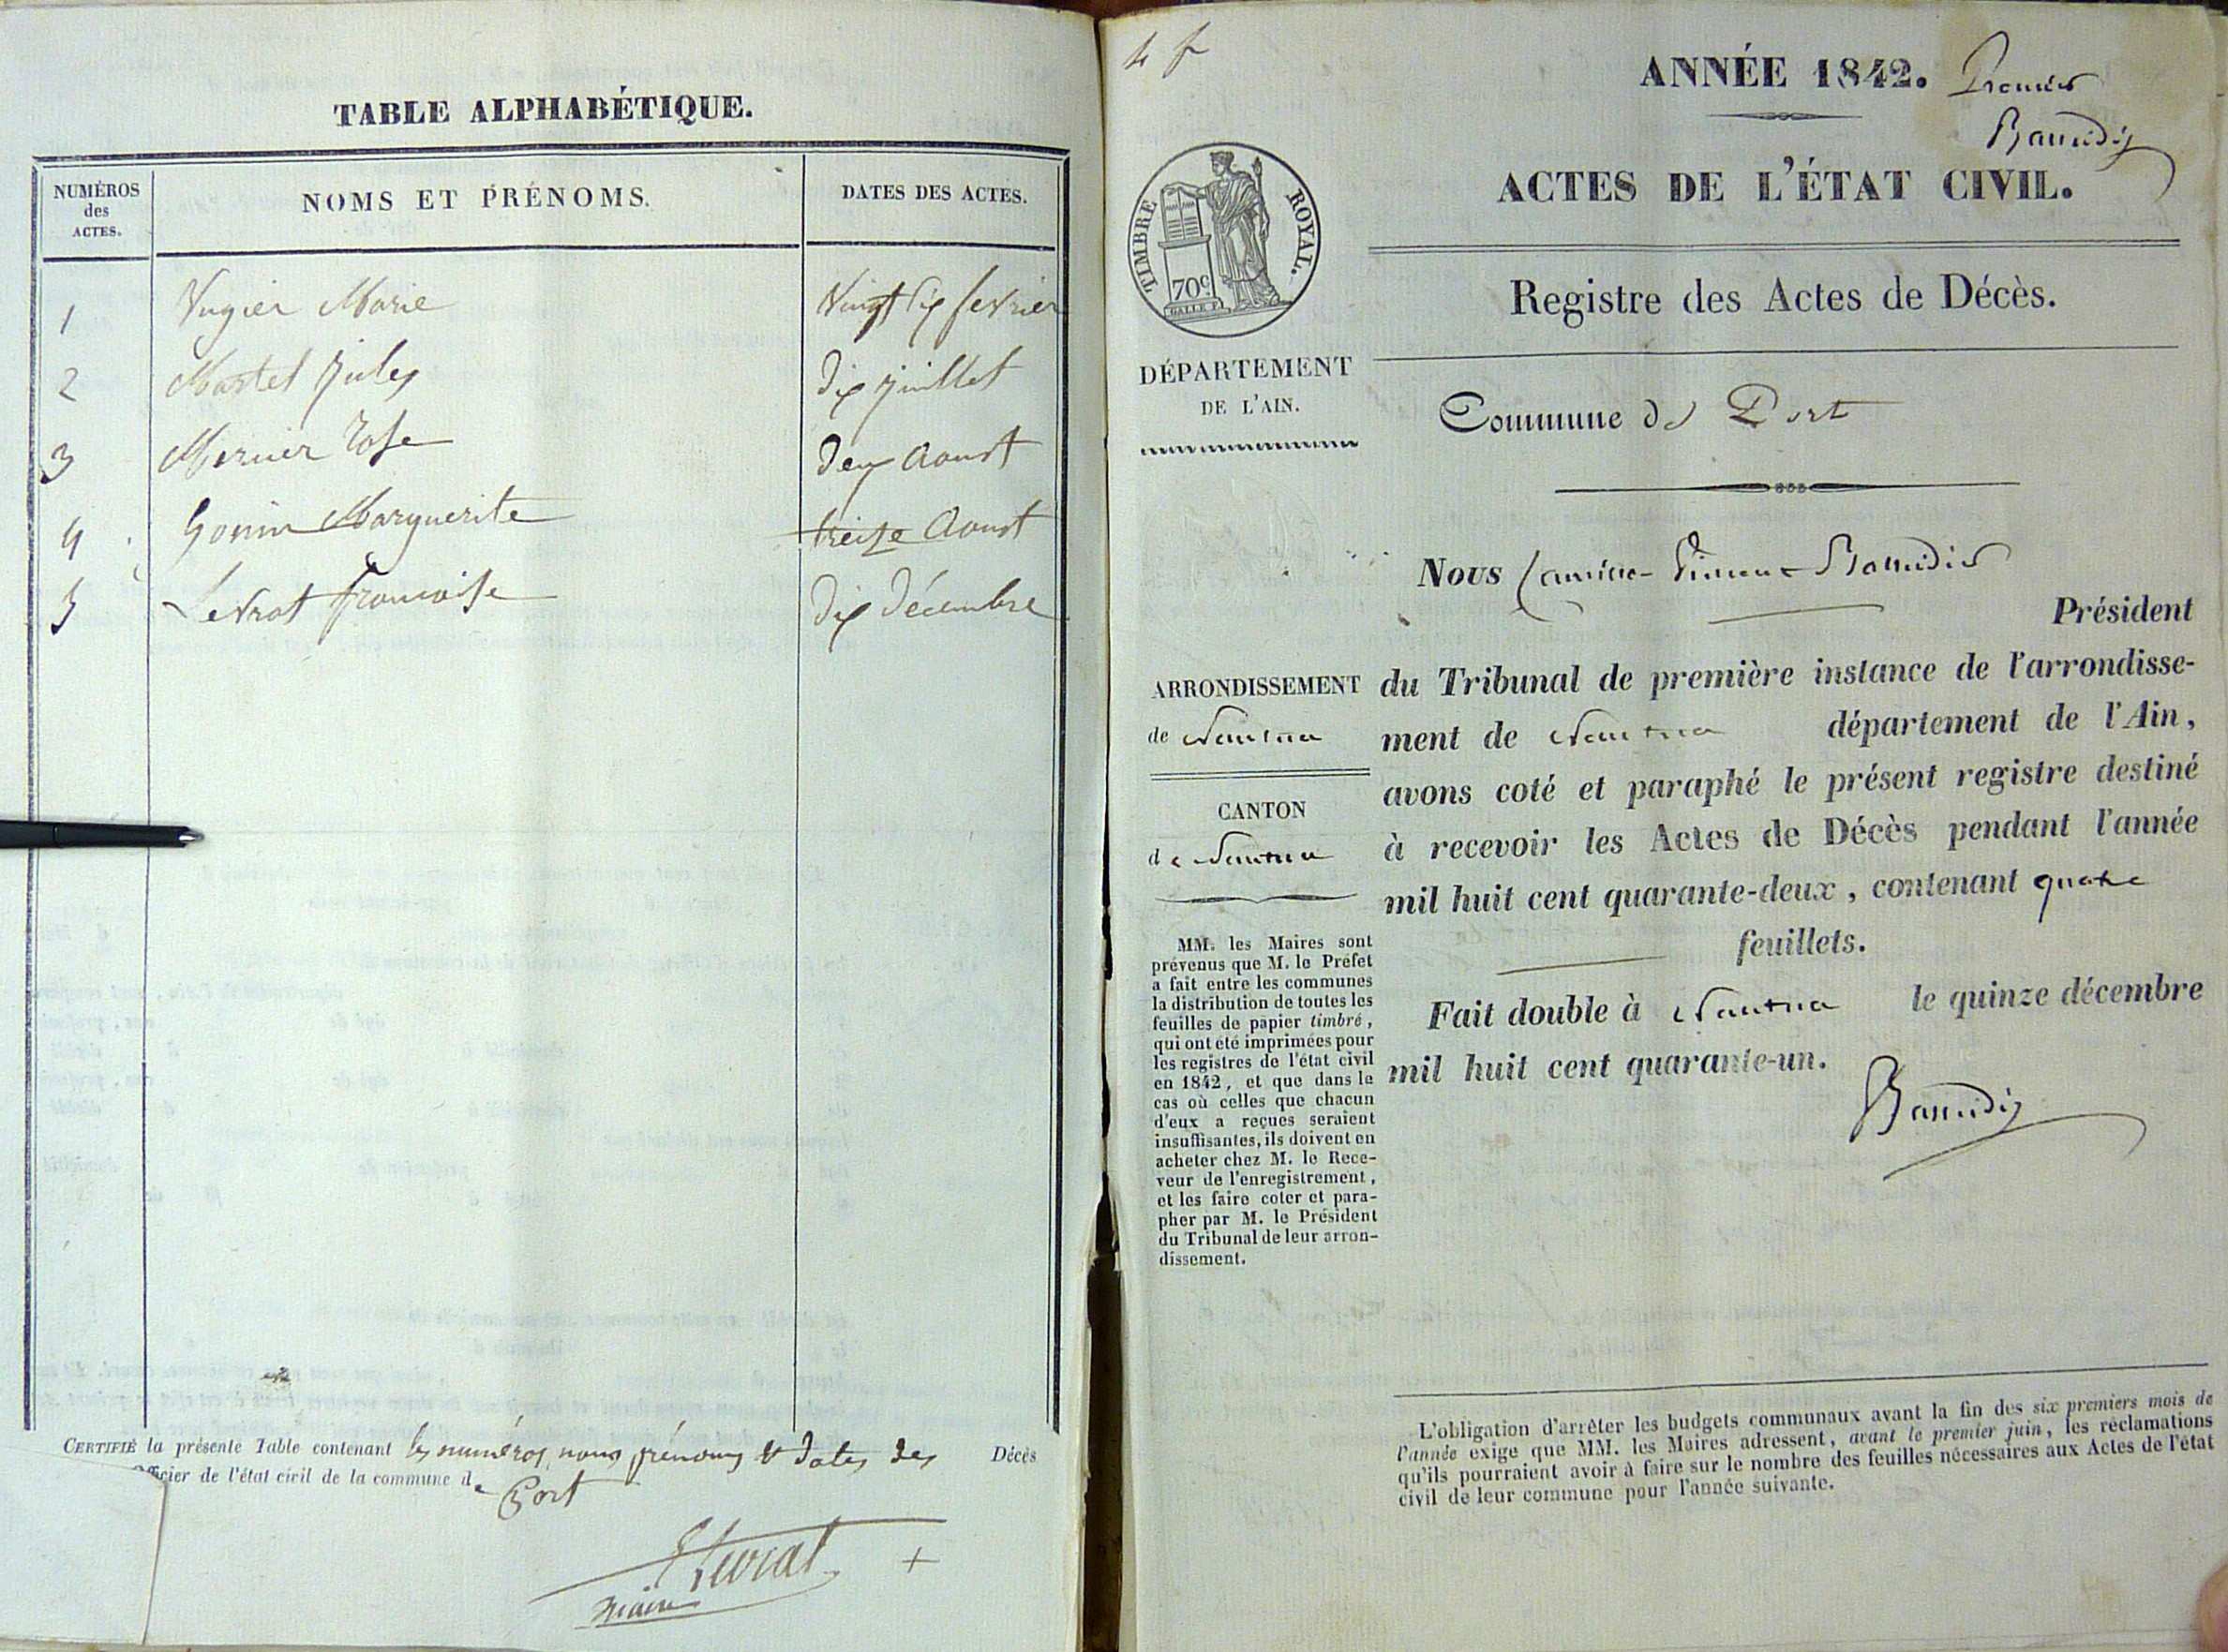 TABLE ALPHABÉTIQUE.
NUMÉROS des ACTES.
NOMS ET PRÉNOMS.
DATES DES ACTES.
1 Vugier Marie Vingt Six fevrier
2 Martel Jules dix juillet
3 Mermier Rose deux Aoust
4 Gonin Marguerite treize Aoust
5 Levrat francoise dix décembre
CERTIFIÉ la présente Table contenant les numéros, noms prénoms & dates des Décès
Officier de l'état civil de la commune de Port
Levrat
maire
4 f
ANNÉE 1842. Premier
ACTES DE L'ÉTAT CIVIL.
TIMBRE ROYAL.
70c
Registre des Actes de Décès.
DÉPARTEMENT
DE L'AIN.
Commune de Port
Nous
Président
ARRONDISSEMENT
de Nantua
CANTON
de Nantua
du Tribunal de première instance de l'arrondisse-
ment de Nantua département de l'Ain,
avons coté et paraphé le présent registre destiné
à recevoir les Actes de Décès pendant l'année
mil huit cent quarante-deux, contenant quatre
feuillets.
Fait double à Nantua le quinze décembre
mil huit cent quarante-un.
MM. les Maires sont
prévenus que M. le Préfet
a fait entre les communes
la distribution de toutes les
feuilles de papier timbré,
qui ont été imprimées pour
les registres de l'état civil
en 1842, et que dans le
cas où celles que chacun
d'eux a reçues seraient
insuffisantes, ils doivent en
acheter chez M. le Rece-
veur de l'enregistrement,
et les faire coter et para-
pher par M. le Président
du Tribunal de leur arron-
dissement.
L'obligation d'arrêter les budgets communaux avant la fin des six premiers mois de
l'année exige que MM. les Maires adressent, avant le premier juin, les réclamations
qu'ils pourraient avoir à faire sur le nombre des feuilles nécessaires aux Actes de l'état
civil de leur commune pour l'année suivante.